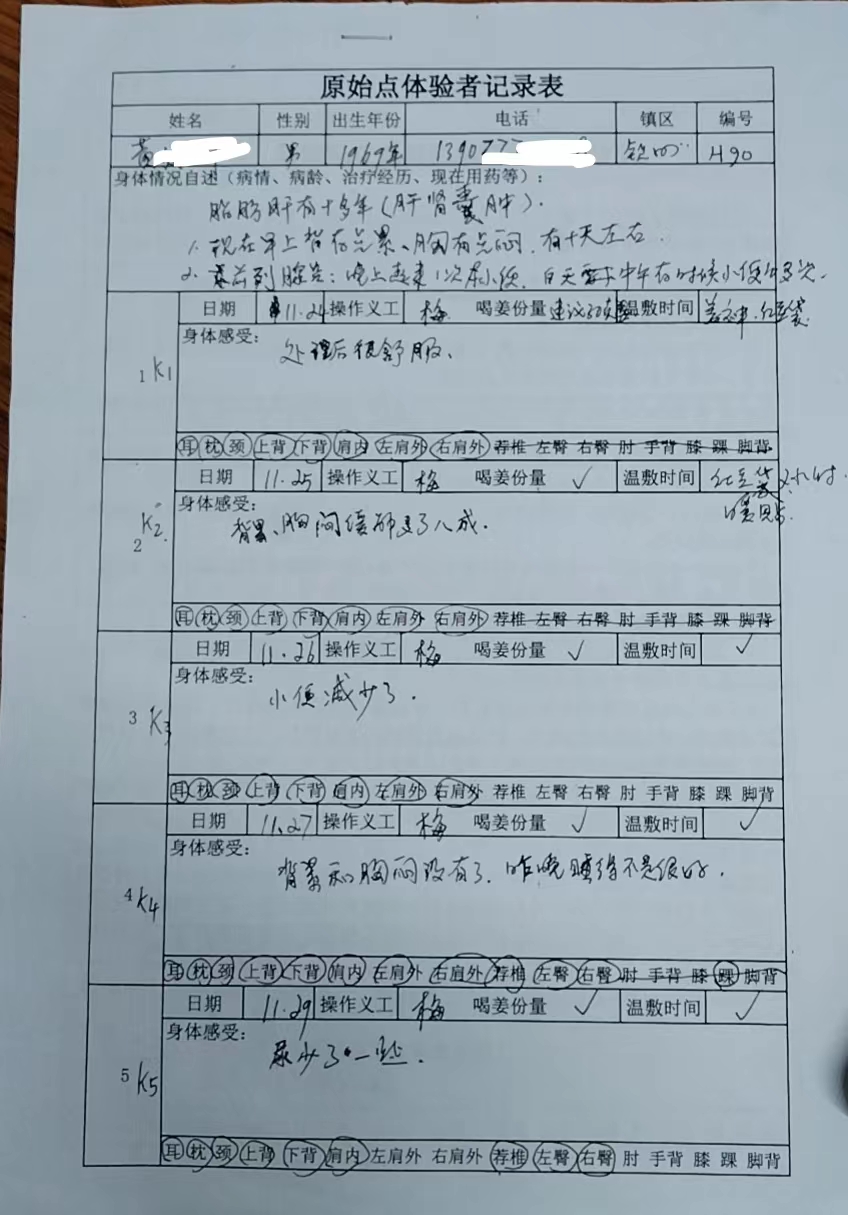 原始点体验者记录表
姓名 性别 出生年份 电话 镇区 编号
黄 男 1969年 13907 H90
身体情况自述（病情、病龄、治疗经历、现在用药等）：
脂肪肝有十多年（肝肾囊肿）.
1. 现在早上背有点累、胸有点闷，有十天左右.
2. 前列腺炎：晚上起来1次小便，白天中午有时候小便多次.
日期 11.24 操作义工 梅 喝姜份量 建议 温敷时间 红豆袋
1 K1 身体感受：
处理后很舒服、
耳 枕 颈 上背 下背 肩内 左肩外 右肩外 荐椎 左臀 右臀 肘 手背 膝 踝 脚背
日期 11.25 操作义工 梅 喝姜份量 ✓ 温敷时间 红豆袋 小时
暖贴.
2 K2. 身体感受：
背累、胸闷缓解了八成.
耳 枕 颈 上背 下背 肩内 左肩外 右肩外 荐椎 左臀 右臀 肘 手背 膝 踝 脚背
日期 11.26 操作义工 梅 喝姜份量 ✓ 温敷时间 ✓
3 K3 身体感受：
小便减少了.
耳 枕 颈 上背 下背 肩内 左肩外 右肩外 荐椎 左臀 右臀 肘 手背 膝 踝 脚背
日期 11.27 操作义工 梅 喝姜份量 ✓ 温敷时间 ✓
4 K4 身体感受：
背累和胸闷没有了. 昨晚睡得不是很好.
耳 枕 颈 上背 下背 肩内 左肩外 右肩外 荐椎 左臀 右臀 肘 手背 膝 踝 脚背
日期 11.29 操作义工 梅 喝姜份量 ✓ 温敷时间 ✓
5 K5 身体感受：
尿少了一些.
耳 枕 颈 上背 下背 肩内 左肩外 右肩外 荐椎 左臀 右臀 肘 手背 膝 踝 脚背